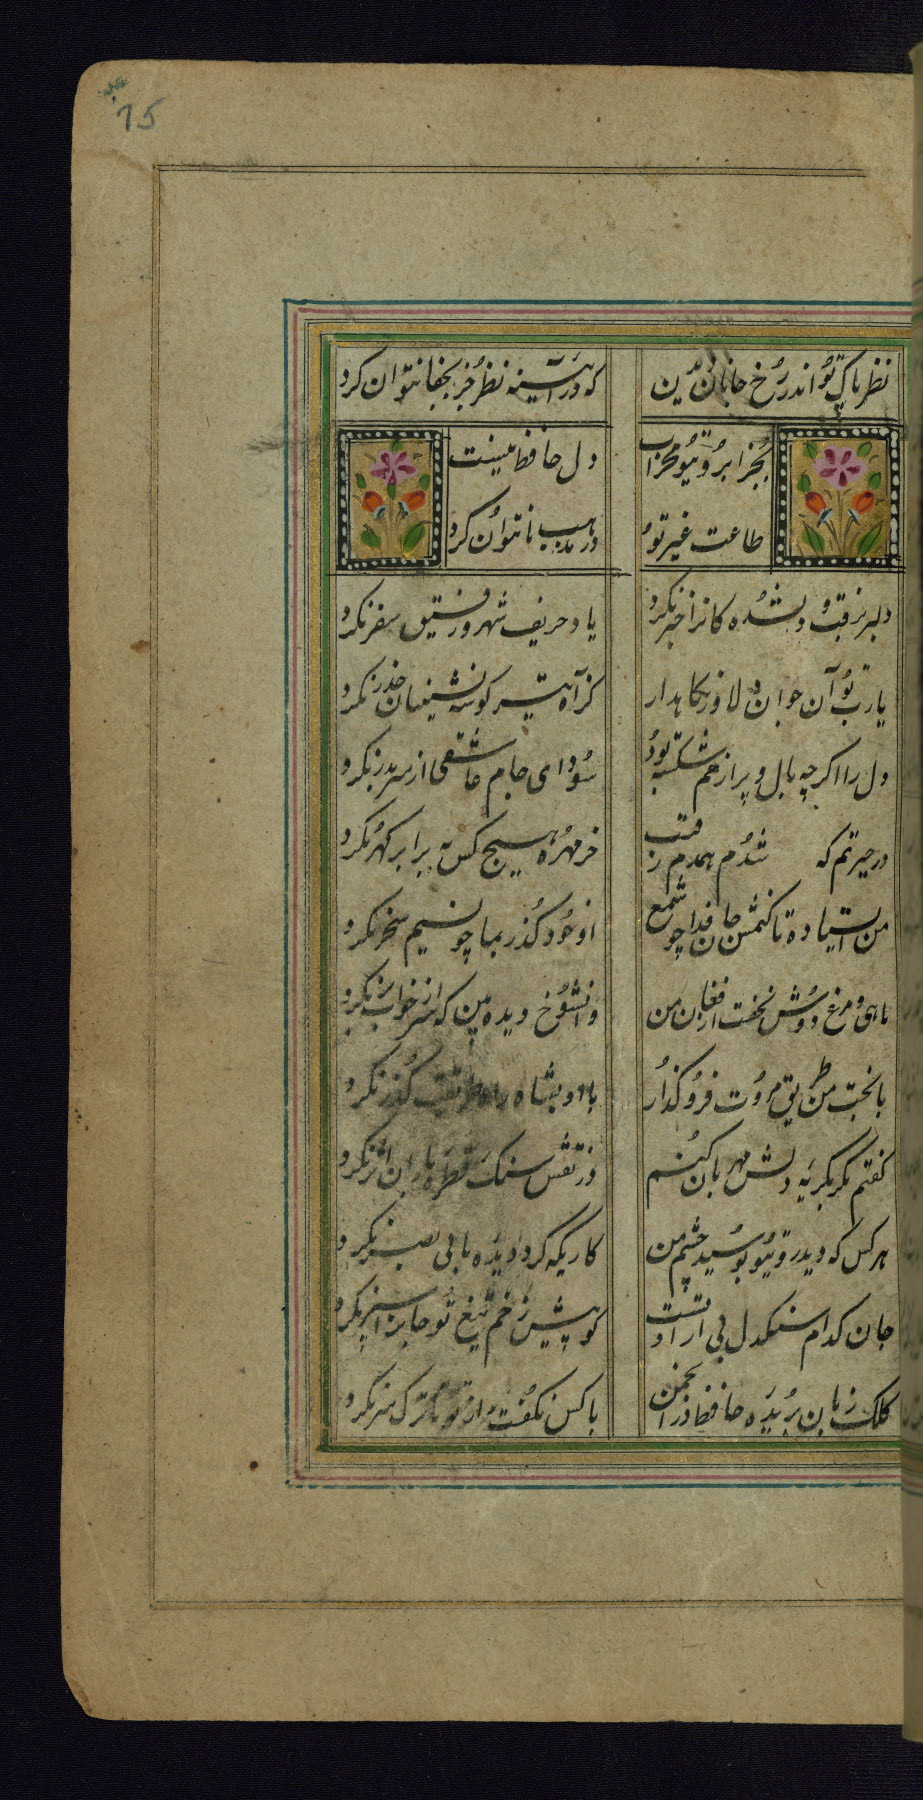 75
نظر پاک تو اندر رخ جانان دیدن
که در آیینه نظر جز بصفا نتوان کرد
بجز ابروی تو محراب
دل حافظ نیست
طاعت غیر تو
در مذهب ما نتوان کرد
دلبر برفت و دلشده کانرا خبر نکرد
یاد حریف شهر و رفیق سفر نکرد
یا رب تو آن جوان دلاور نکاه دار
کز آه تیر کوشه نشینان حذر نکرد
دل را اکرچه بال و پر از هم شکسته بود
سودای جام عاشقی از سر بدر نکرد
در حیرتم که شدم همدم رقیب
خر مهره هیچ کس به برابر کهر نکرد
من ایستاده تا کنمش جان فدا چو شمع
او خود کذر بما چو نسیم سحر نکرد
ماهی و مرغ دوش نخفت از فغان من
وانشوخ دیده بین که سر از خواب بر نکرد
مروت فروکذار
کذر نکرد
کفتم مکر بکریه دلش مهربان کنم
در نقش سنک قطره باران اثر نکرد
هر کس که دید روی تو بوسید چشم من
کاریکه کرد دیده ما بی بصر نکرد
جان کدام سنکدل بی ارادتست
کو پیش زخم تیغ تو جانرا سپر نکرد
کلک زبان بریده حافظ در انجمن
با کس نکفت راز تو تا ترک سر نکرد